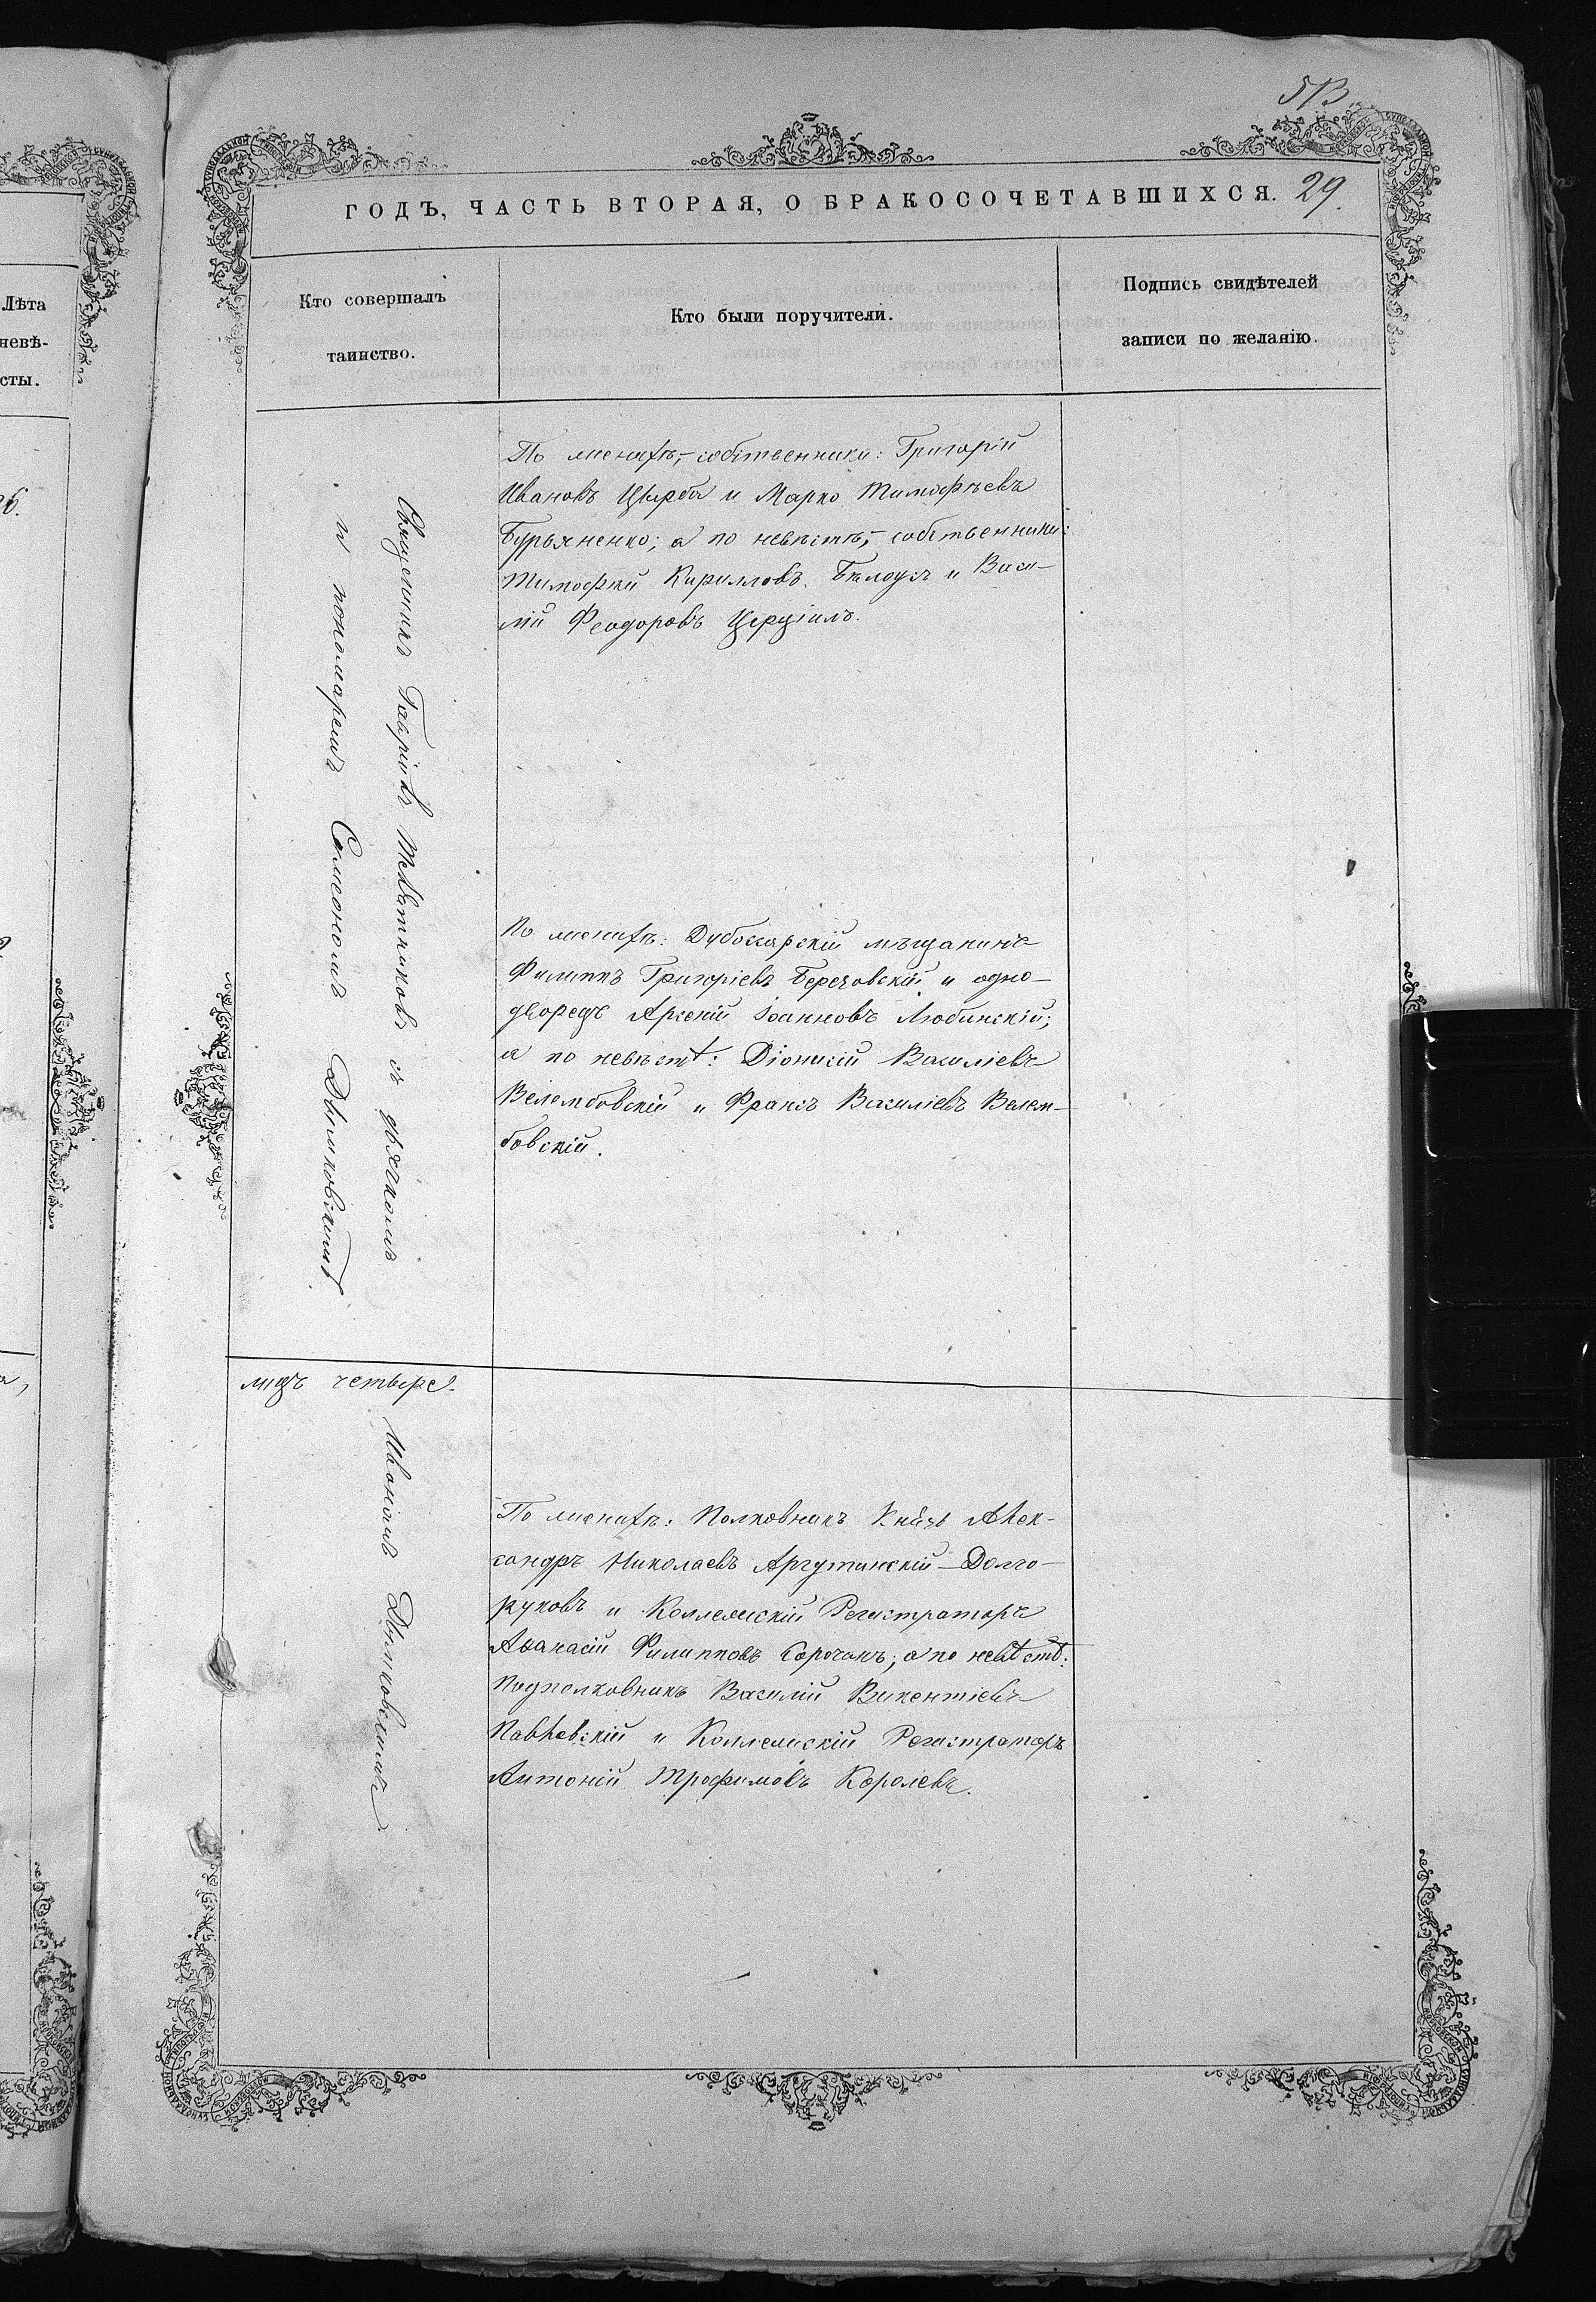 ГОДЪ, ЧАСТЬ ВТОРАЯ, О БРАКОСОЧЕТАВШИХСЯ. 29.
Лѣта
невѣ-
сты.
Кто совершалъ
таинство.
Кто были поручители.
Подпись свидѣтелей
записи по желанію.
Священникъ Гавріилъ с дьячкомъ
и пономаремъ Симеономъ Дымковскимъ
По женихѣ,- собственники: Григорій
Ивановъ Щерба и Марко Тимофѣевъ
Бурьяненко; а по невѣстѣ,- собственники:
Тимофей Кирилловъ Бѣлоусъ и Васи-
лій Феодоровъ
По женихѣ: Дубоссарскій мѣщанинъ
Филиппъ Григоріевъ Березовскій и одно-
дворецъ Арсеній Іоанновъ Любинскій;
а по невѣстѣ: Діонисій Василіевъ
Велембовскій и Францъ Василіевъ Велем-
бовскій.
четыре.
Иваномъ Дымковскимъ
По женихѣ: Полковникъ Князь Алек-
сандръ Николаевъ Аргутинскій-Долго-
руковъ и Коллежскій Регистраторъ
Аѳанасій Филипповъ Сорочанъ; а по невѣстѣ:
Подполковникъ Василій Викентіевъ
Павлевскій и Коллежскій Регистраторъ
Антоній Трофимовъ Королевъ.